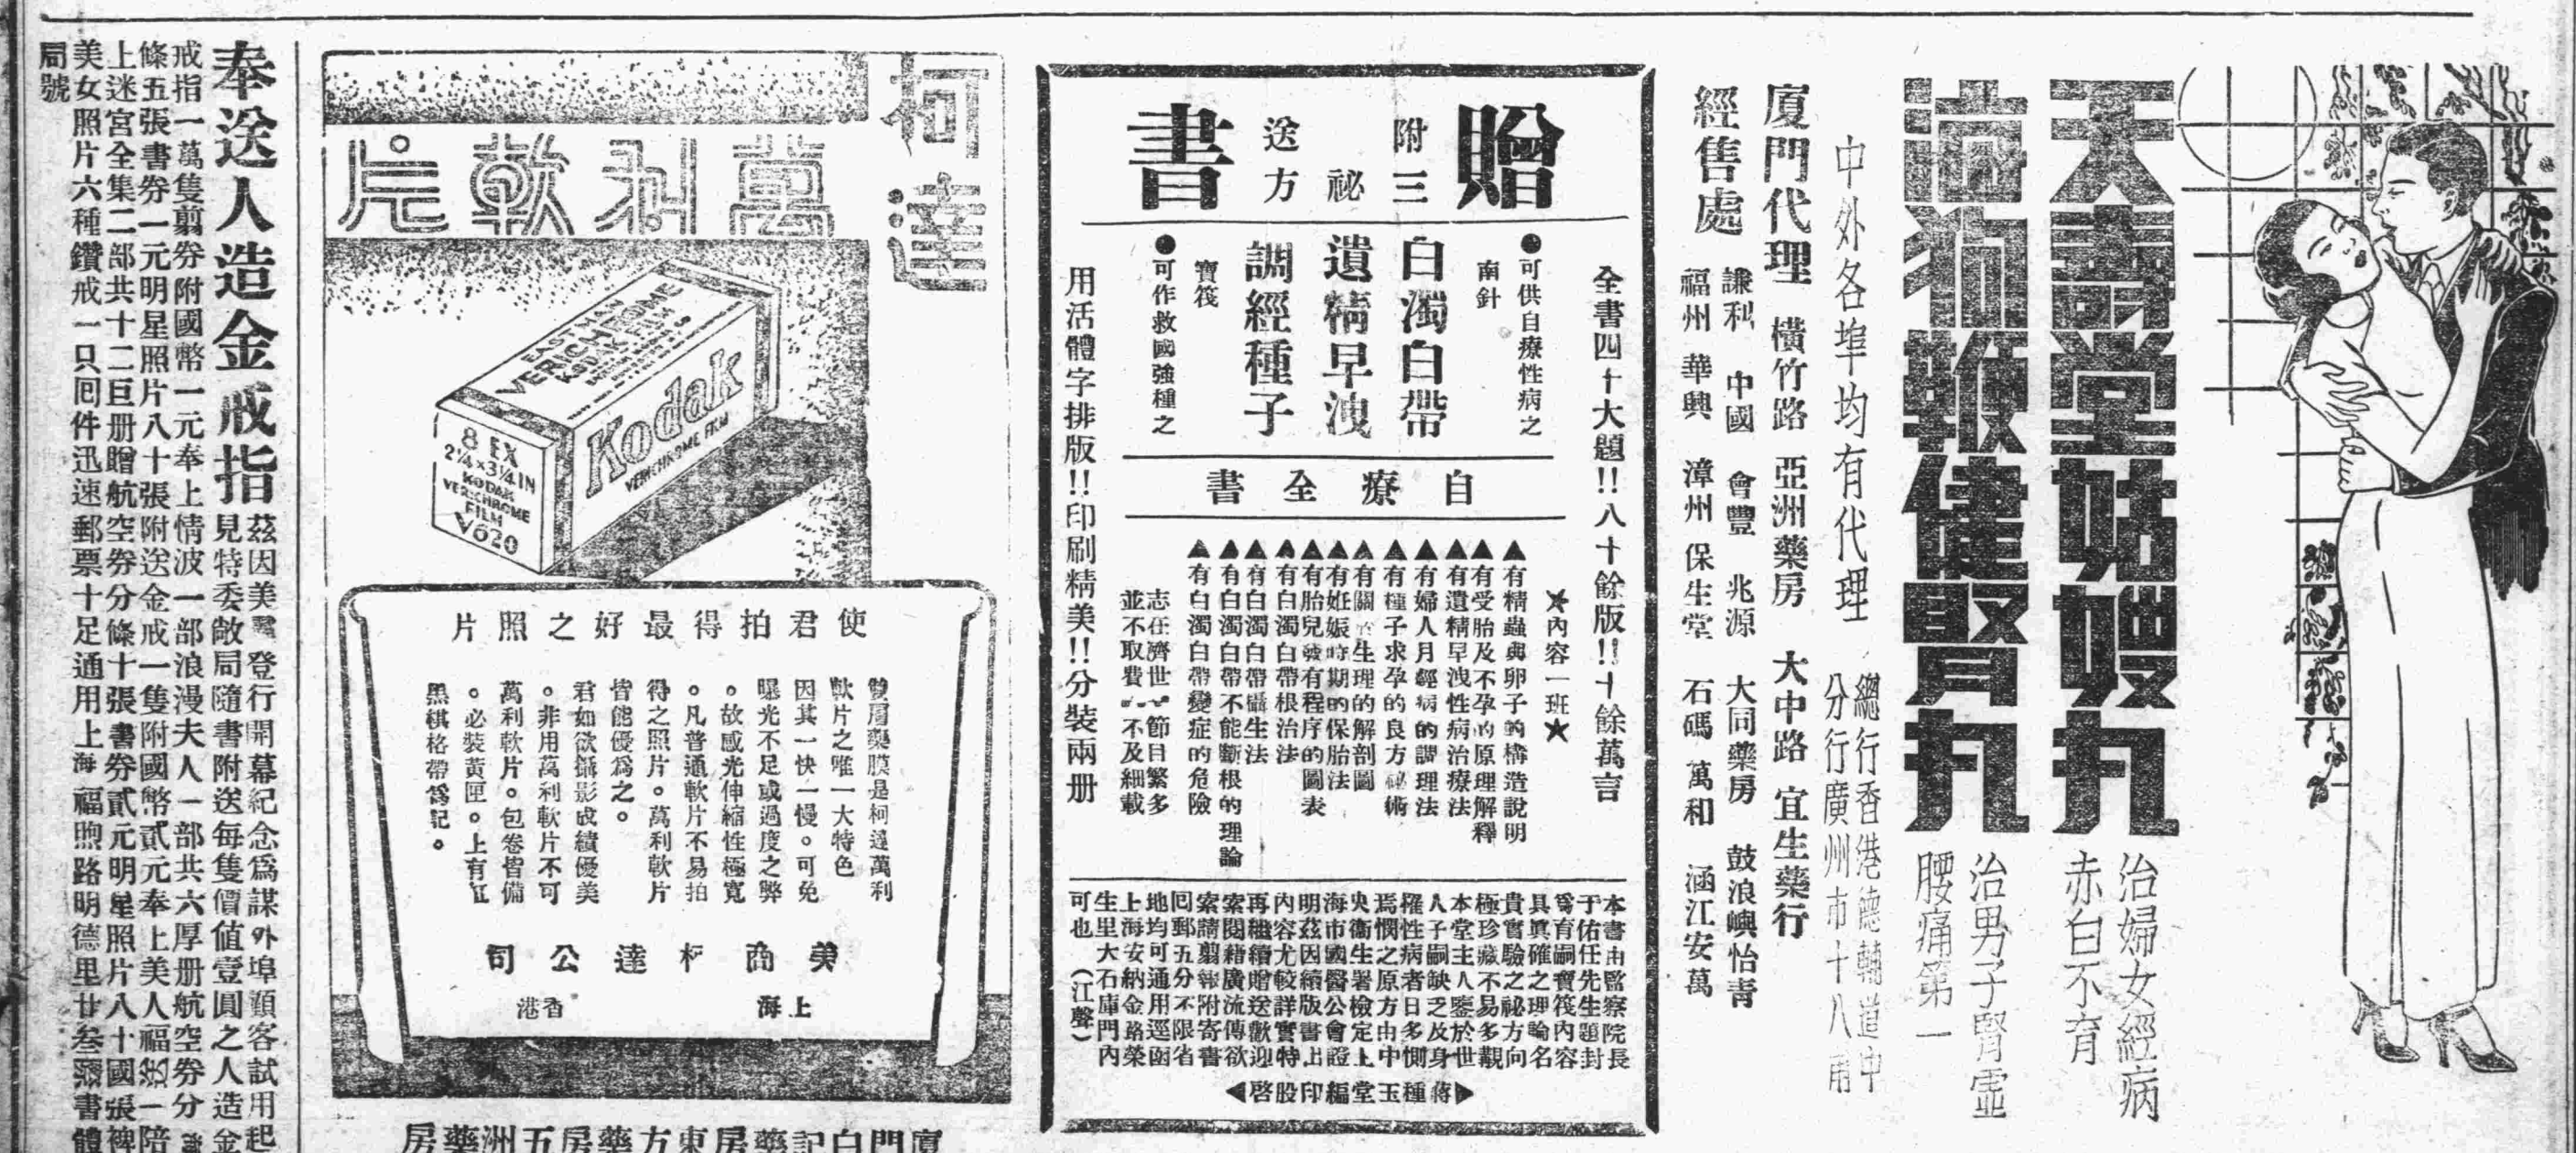 天壽堂姑嫂丸
治婦女經病
赤白不育
海狗鞭健腎丸
治男子腎虛
腰痛第一
中外各埠均有代理
總行香港德輔道中
分行廣州市十八甫
廈門代理 橫竹路 亞洲藥房 大中路 宜生藥行
經售處
謙利 中國 會豐 兆源 大同藥房 鼓浪嶼怡青
福州 華興 漳州 保生堂 石碼 萬和 涵江安萬
贈書
附三祕方送
全書四十大題!!八十餘版!!十餘萬言
●可供自療性病之
南針
白濁白帶
遺精早洩
調經種子
寶筏
●可作救國強種之
用活體字排版!!印刷精美!!分裝兩册
自療全書
★內容一班★
▲有精蟲與卵子的構造說明
▲有受胎及不孕的原理解釋
▲有遺精早洩性病治療法
▲有婦人月經病的調理法
▲有種子求孕的良方祕術
▲有關於生理的解剖圖
▲有妊娠時期的保胎法
▲有胎兒發育程序的圖表
▲有白濁白帶根治法
▲有白濁白帶攝生法
▲有白濁白帶不能斷根的理論
▲有白濁白帶變症的危險
志在濟世 節目繁多
並不取費 不及細載
本書由監察院長
于佑任先生題封
爲育嗣寶筏內容
具真確之理論名
貴實驗之祕方向
極珍藏不易多觀
本堂主人鑒於世
人子嗣缺乏及身
罹性病者日多惻
焉憫之原方由中
央衞生署檢定上
海市國醫公會證
明茲因續版書出
內容尤較詳實特
再繼續贈送歡迎
索閱藉廣流傳欲
索請剪報附寄書
囘郵五分不限省
地均可通用逕函
上海安納金路榮
生里大石庫門內
可也 (江聲)
▶蔣種玉堂編印股啓◀
柯達
萬利軟片
EASTMAN
VERICHROME
KODAK FILM
Kodak
VERICHROME FILM
8 EX
2¼×3¼ IN
KODAK
VERICHROME
FILM
V620
使君拍得最好之照片
雙層藥膜是柯達萬利
軟片之唯一大特色
因其一快一慢。可免
曝光不足或過度之弊
。故感光伸縮性極寬
。凡普通軟片不易拍
得之照片。萬利軟片
皆能優爲之。
君如欲攝影成績優美
。非用萬利軟片不可
萬利軟片。包卷皆備
。必裝黃匣。上有紅
黑棋格帶爲記。
美商柯達公司
上海 香港
廈門白記藥房東方藥房五洲藥房
奉送人造金戒指
茲因美 登行開幕紀念爲謀外埠顧客試用起
見特委敝局隨書附送每隻價值壹圓之人造金
戒指一萬隻剪券附國幣一元奉上情波一部浪漫夫人一部共六厚册航空券分
條五張書券一元明星照片八十張附送金戒一隻附國幣貳元奉上美人福 一陪
上迷宮全集二部共十二巨册贈航空券分條十張書券貳元明星照片八十國張裨
美女照片六種鑽戒一只囘件迅速郵票十足通用上海福煦路明德里廿叁 書體
局號